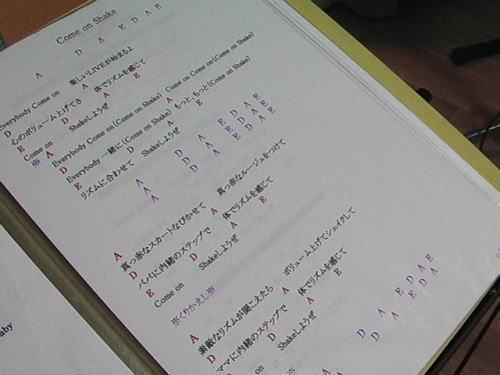 Come on Shake
A D A E D A E
A A
Everybody Come on 楽しいLIVEが始まるよ
D A E
心のボリューム上げてさ 体でリズムを感じて
E D
Come on Shakeしようぜ
※ A D A
Everybody Come on (Come on Shake) Come on Come on (Come on Shake)
D A E
Everybody 一緒に (Come on Shake) もっと、もっと (Come on Shake)
E D
リズムに合わせて Shakeしようぜ
A D A E D A E
A D A E D A E
A
真っ赤なスカートなびかせて 真っ赤なルージュをつけて
D A E
パパに内緒のステップで 体でリズムを感じて
E D
Come on Shakeしようぜ
※くりかえし※
A A
素敵なリズムが聞こえたら ボリューム上げてシェイクして
D A E
ママに内緒のステップで 体でリズムを感じて
D
on Shakeしようぜ
D A E D A E
D A E D A E
aby